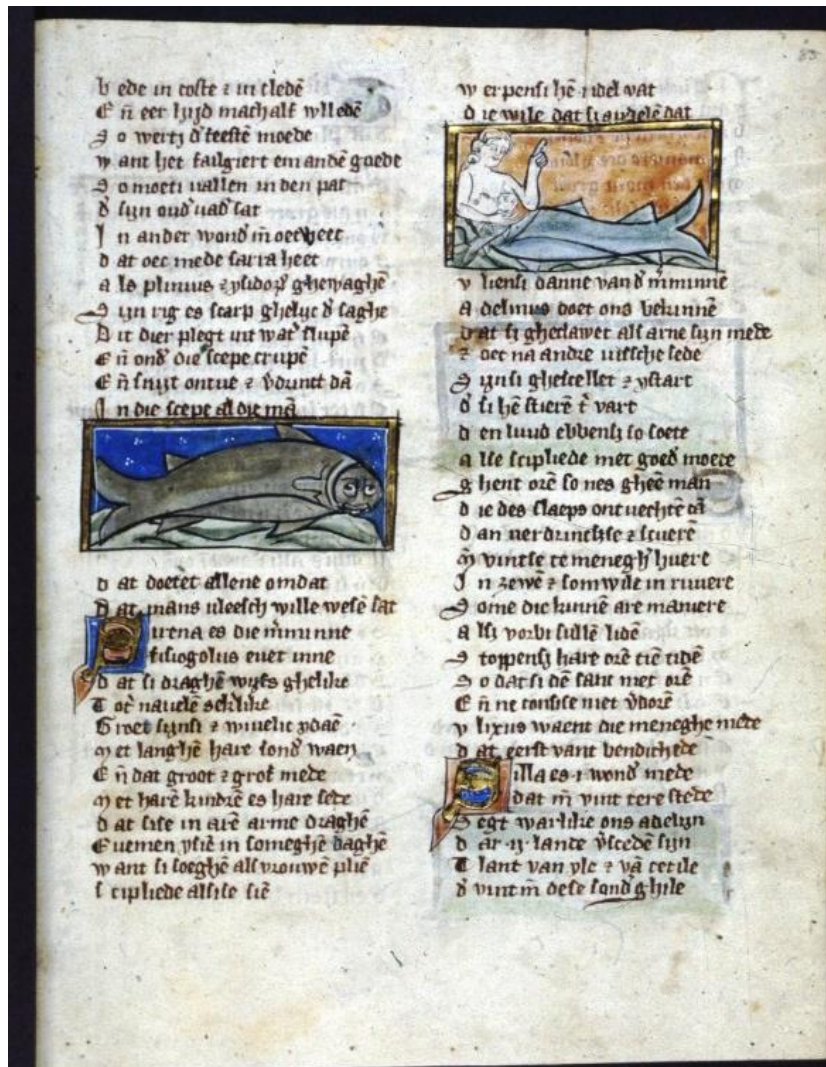 b ede in coste ⁊ in cledē
E n̄ eer hijd mach als wlledē
S o wertj d' teeste moede
w ant het failgiert em andē goede
S o moeti vallen in den pat
d' sijn oud' vad' sat
I n ander wond' m̄ oec weet
d at oec mede sarra heet
a ls plinius ⁊ ysidor' ghewaghē
S ijn rig es scarp ghelijc d' saghe
D it dier plegt int wat' slupē
E n̄ ond' die scepe crupē
E n̄ snijt ontue ⁊ v'drinct dā
I n die scepe al die mā
d at doetet allene omdat
D at mans vleesch wille wesē sat
S irena es die m'minne
fisiogolus euet inne
d at si draghē wijfs ghelike
T ot' nauele sekerlike
G roet sijnsi ⁊ wiuelic ydaē
m et langhē hare sond' waen
E n̄ dat groot ⁊ grof mede
m et harē kindrē es hare sede
d at sise in arē arme draghē
E uemen ysiē in someghē daghē
w ant si soeghē als vrouwē pliē
s cipliede alsise siē
w erpensi hē .i. idel vat
d ie wile dat si andelē dat
v liensi danne van d' m'minnē
a delinus doet ons bekinnē
d at si gheclawet als arne sijn mede
⁊ oec na andre vissche sede
S ijnsi ghescellet ⁊ ystart
d' si hē stierē t' vart
d en luud ebbensi so soete
a lse scipliede met goed' moete
g hent orē so nes gheē man
d ie des slaeps ontuechtē cā
d an verdrinctsise ⁊ scuerē
m̄ vintse te menegh' huere
I n zewē ⁊ somwile in riuiere
S ome die kinnē are maniere
a lsi vorbi sullē lidē
S toppensj hare orē tiē tidē
S o dat si dē sanc niet orē
E n̄ ne conse niet v'dorē
v lixus waent die meneghe mede
d at eerst vant bendichede
S illa es .i. wond' mede
dat m̄ vint tere stede
S egt warlike ons adelijn
d ar .ij. lande v'sceden sijn
T lant van ytale ⁊ vā cecile
d' vint m̄ dese sond' ghile